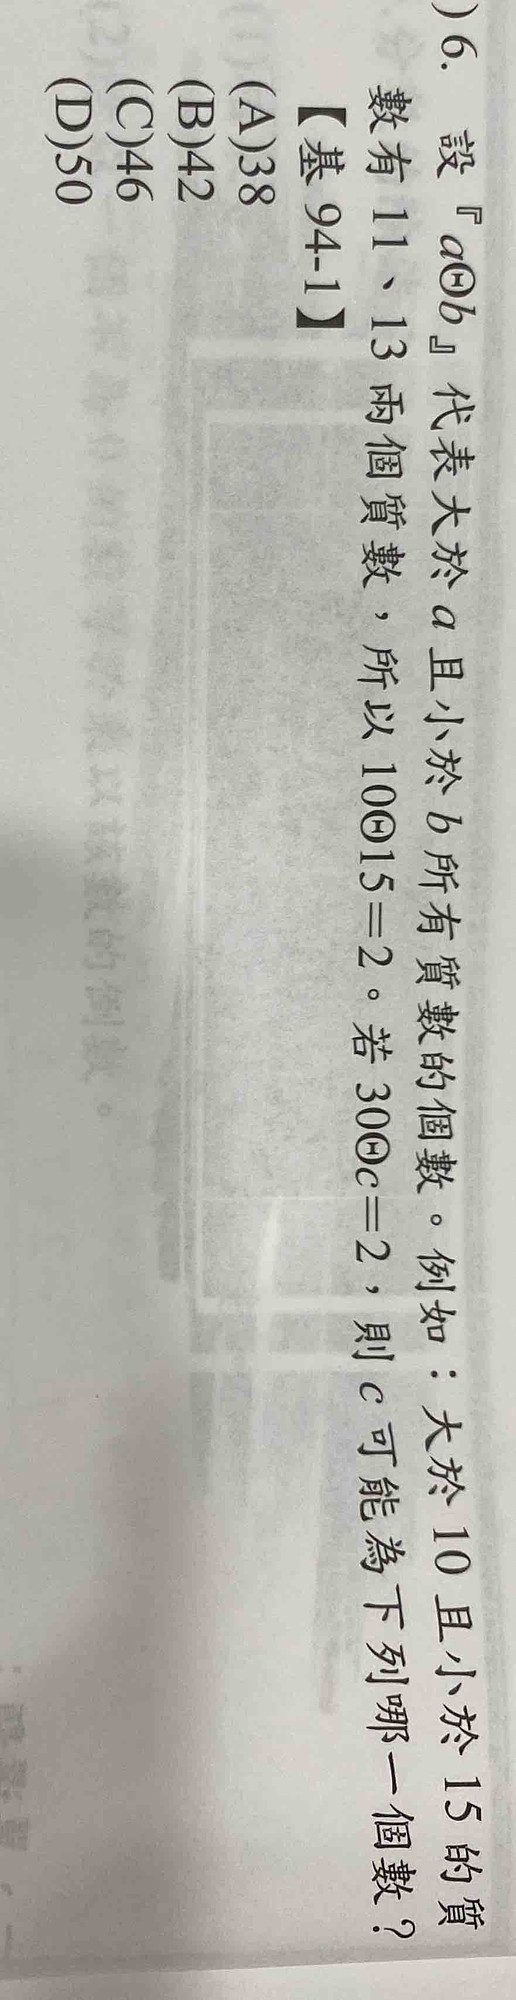 )6. 設『aΘb』代表大於 a 且小於 b 所有質數的個數。例如：大於 10 且小於 15 的質
數有 11、13 兩個質數，所以 10Θ15=2。若 30Θc=2，則 c 可能為下列哪一個數？
【基 94-1】
(A)38
(B)42
(C)46
(D)50